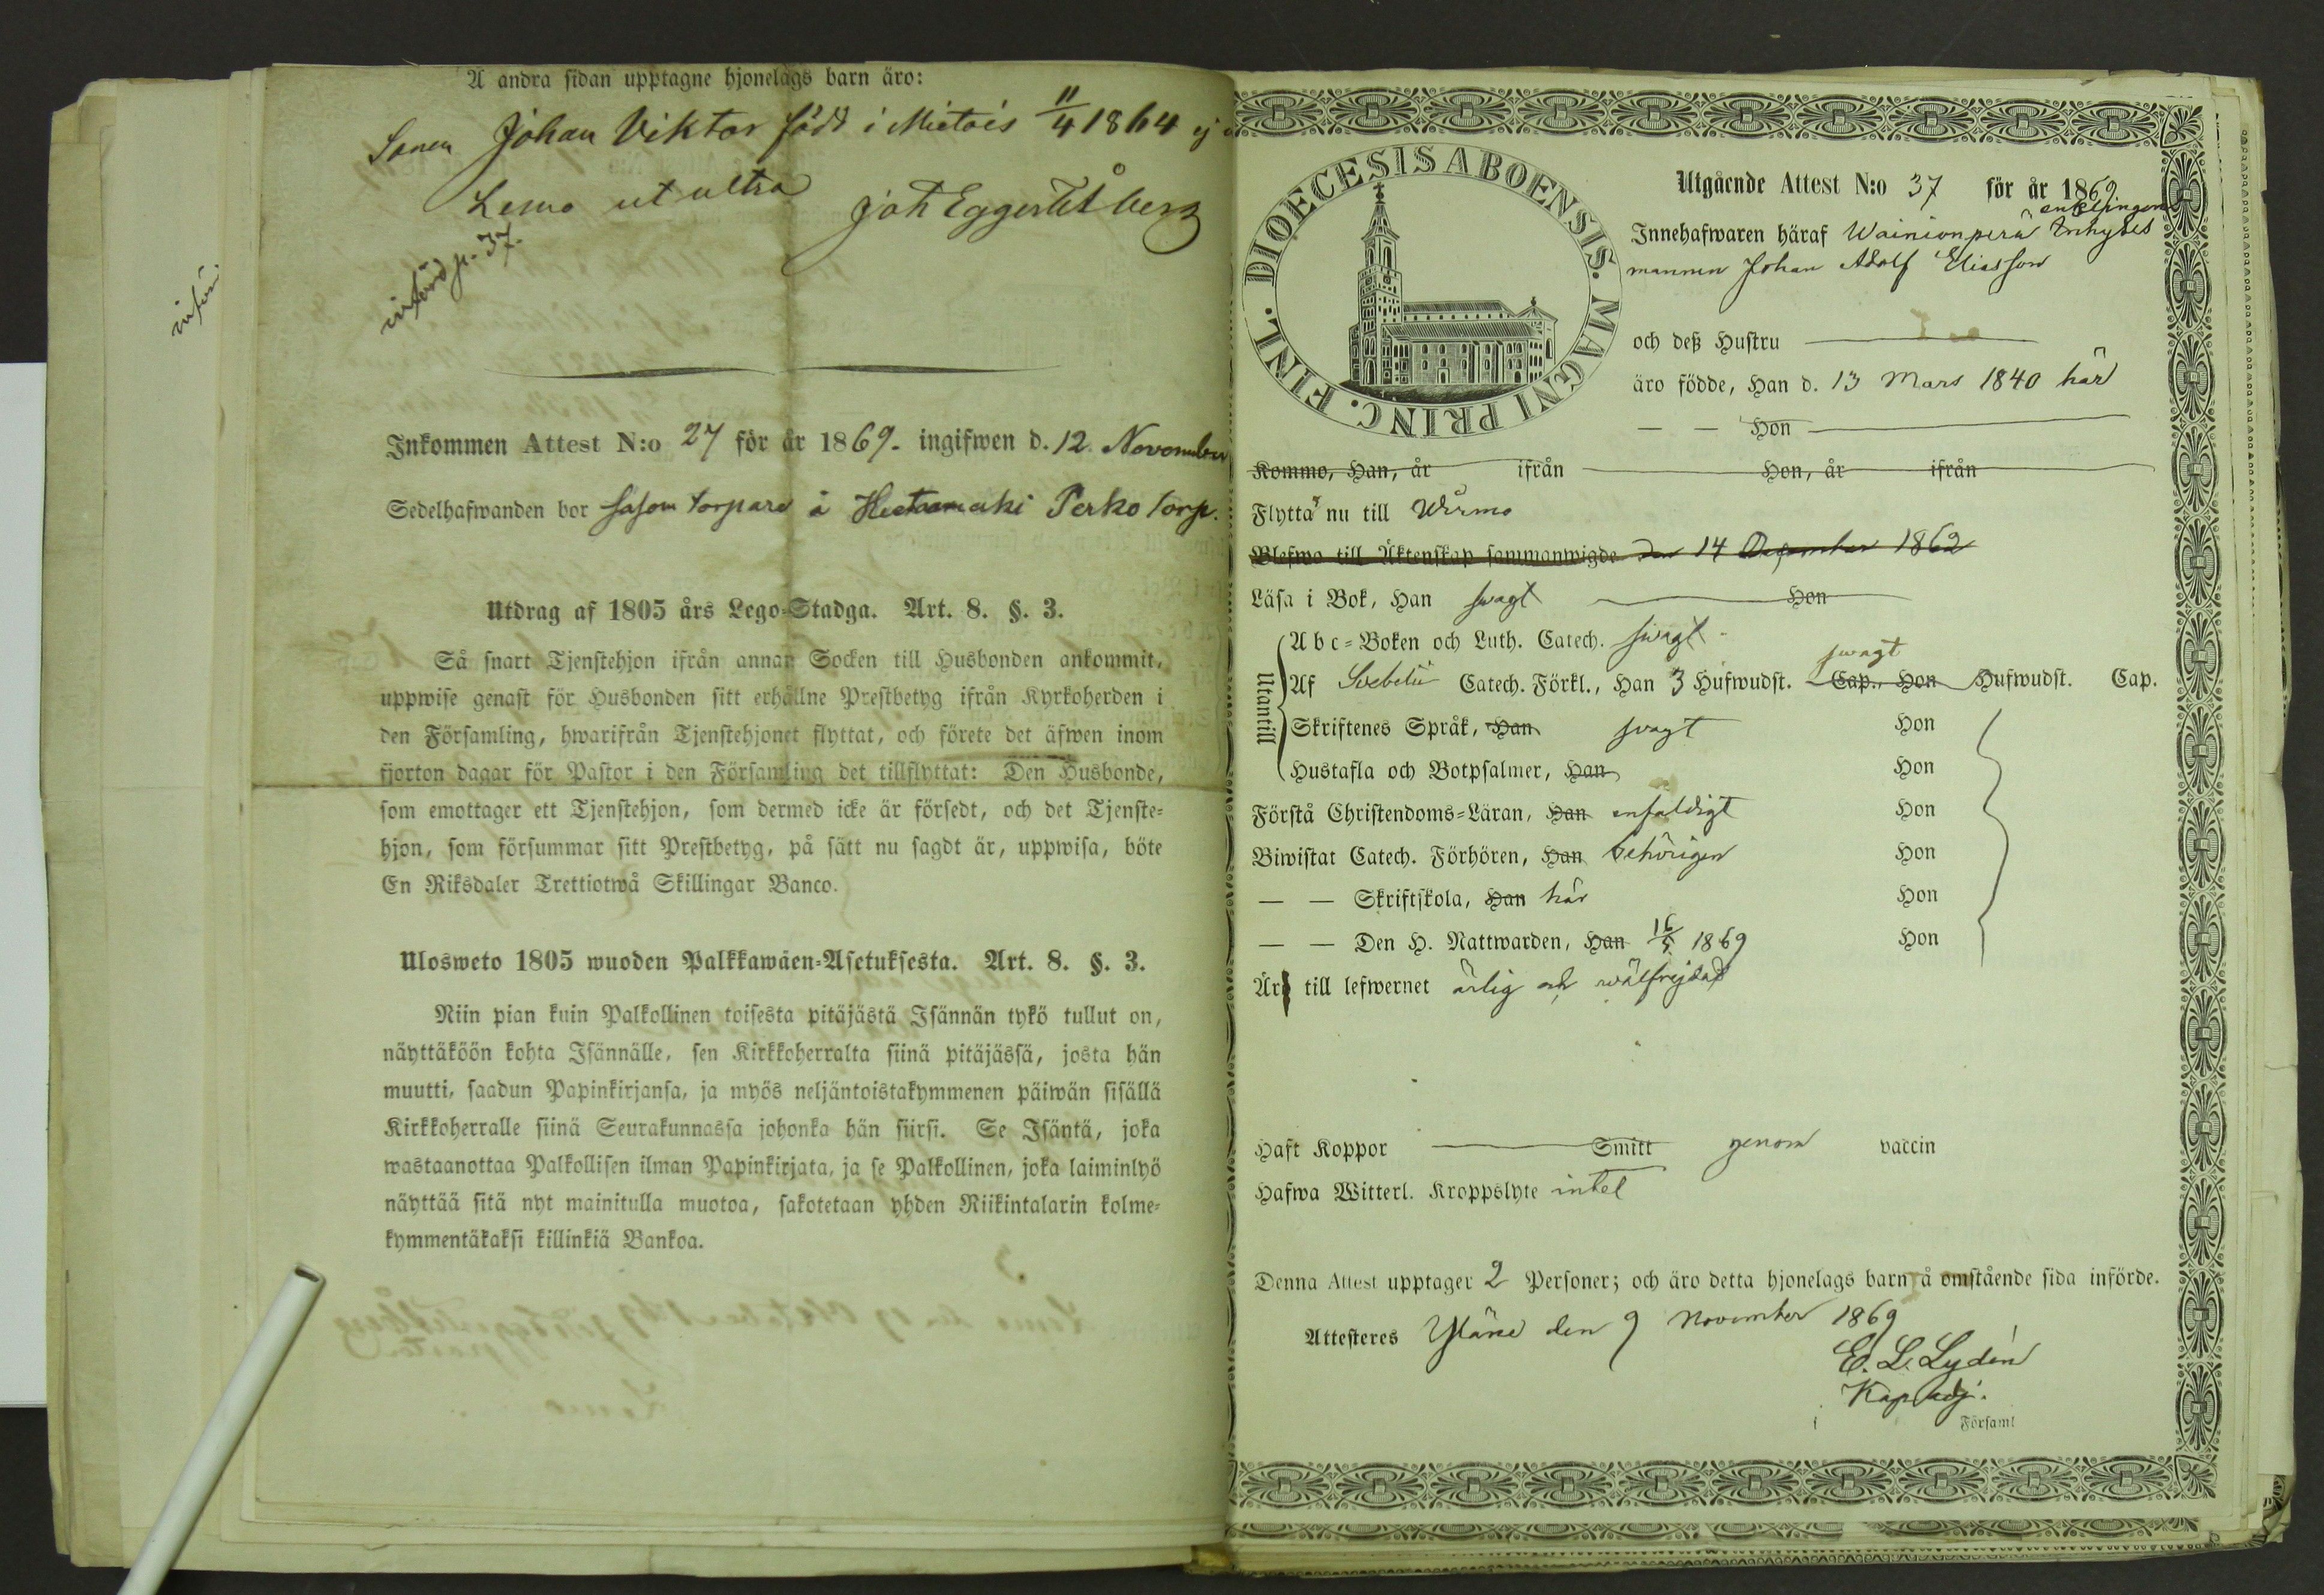 Å andra sidan upptagne hjonelags barn äro:
Sonen Johan Viktor född i Mietois 11/4 1864
Lemo ut ultra Joh Eggertz Åberg
införd p. 37.
Inkommen Attest N:o 27 för år 1869. ingifwen d. 12 November
Sedelhafwanden bor såsom torpare å Hietaamäki Perko torp.
Utdrag af 1805 års Lego-Stadga. Art. 8. §. 3.
Så snart Tjenstehjon ifrån annan Socken till Husbonden ankommit,
uppwise genast för Husbonden sitt erhållne Prestbetyg ifrån Kyrkoherden i
den Församling, hwarifrån Tjenstehjonet flyttat, och förete det äfwen inom
fjorton dagar för Pastor i den Församling det tillflyttat: Den Husbonde,
som emottager ett Tjenstehjon, som dermed icke är försedt, och det Tjenste-
hjon, som försummar sitt Prestbetyg, på sätt nu sagdt är, uppwisa, böte
En Riksdaler Trettiotwå Skillingar Banco.
Ulosweto 1805 wuoden Palkkawäen-Asetuksesta. Art. 8. §. 3.
Niin pian kuin Palkollinen toisesta pitäjästä Isännän tykö tullut on,
näyttäköön kohta Isännälle, sen Kirkkoherralta siinä pitäjässä, josta hän
muutti, saadun Papinkirjansa, ja myös neljäntoistakymmenen päiwän sisällä
Kirkkoherralle siinä Seurakunnassa johonka hän siirsi. Se Isäntä, joka
wastaanottaa Palkollisen ilman Papinkirjata, ja se Palkollinen, joka laiminlyö
näyttää sitä nyt mainitulla muotoa, sakotetaan yhden Riikintalarin kolme-
kymmentäkaksi killinkiä Bankoa.
DIOECESIS ABOENSIS. MAGNI PRINC. FINL.
Utgående Attest N:o 37 för år 1869
enklingen
Innehafwaren häraf Wainionperä Inhyses
mannen Johan Adolf Eliasson
och deß Hustru
äro födde, Han d. 13 Mars 1840 här
— — Hon
Kommo, Han, år ifrån Hon, år ifrån
Flytta nu till Wirmo
Blefwo till Äktenskap sammanwigde den 14 December 1862
Läsa i Bok, Han swagt Hon
Utantill
Abc-Boken och Luth. Catech. swagt
swagt
Af Svebelii Catech. Förkl., Han 3 Hufwudst. Cap., Hon Hufwudst. Cap.
Skriftenes Språk, Han swagt Hon
Hustafla och Botpsalmer, Han Hon
Förstå Christendoms-Läran, Han enfaldigt Hon
Biwistat Catech. Förhören, Han behörigen Hon
— — Skriftskola, Han här Hon
— — Den H. Nattwarden, Han 16/5 1869 Hon
Är till lefwernet ärlig och wälfrejdad
Haft Koppor Smitt genom vaccin
Hafwa Witterl. Kroppslyte intet
Denna Attest upptager 2 Personer; och äro detta hjonelags barn å omstående sida införde.
Attesteres Yläne den 9 November 1869
E. L. Lydén
Kap. adj.
i Församl